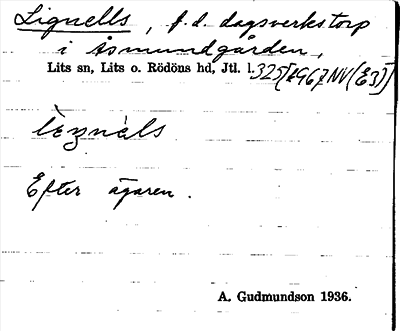 Lignells, f.d. dagsverkstorp
i Åsmundgården,
Lits sn, Lits o. Rödöns hd, Jtl. l.325[1967NV(E3)]
Efter ägaren.
A. Gudmundson 1936.